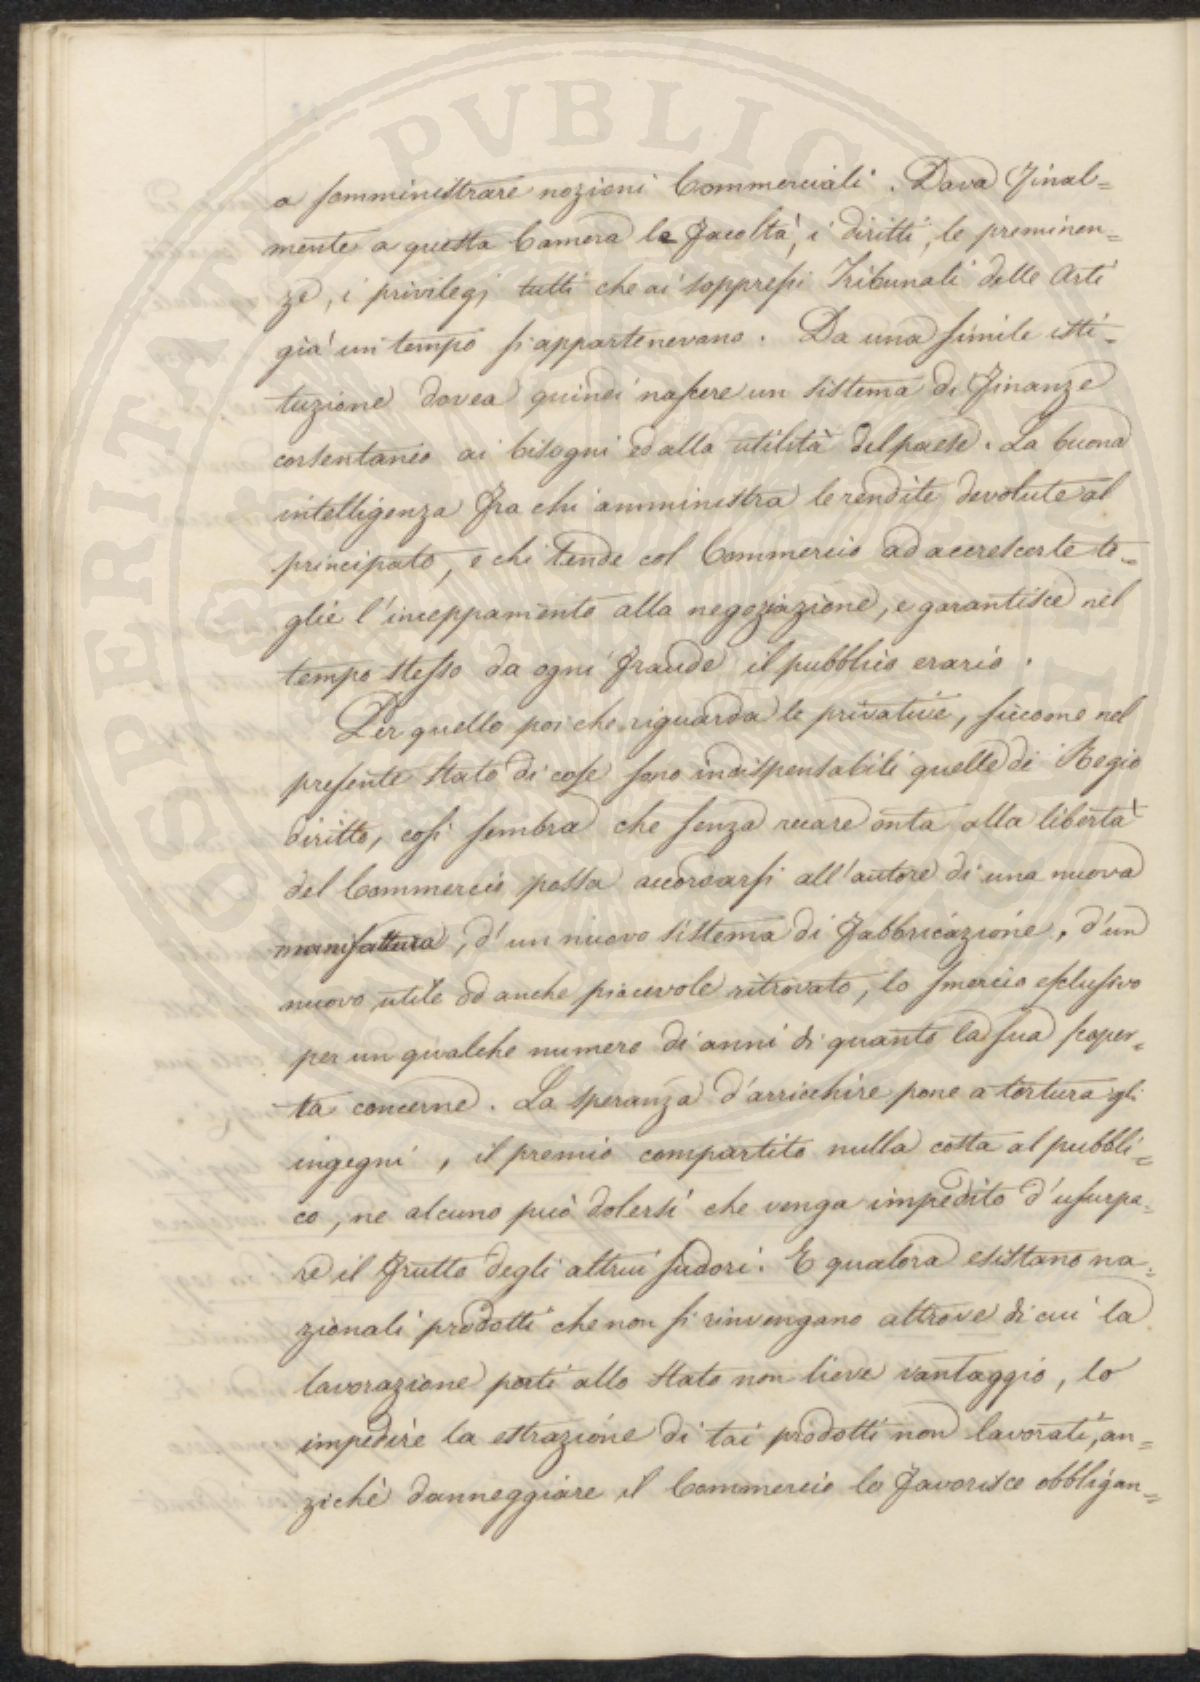 a somministrare nozioni Commerciali. Dava Final=
mente a questa Camera le Facoltà, i diritti, le preminen=
ze, i privilegj tutti che ai soppressi Tribunali delle Arti
già un tempo si appartenevano. Da una simile isti=
tuzione dovea quindi nascere un sistema di Finanze
consentaneo ai bisogni ed alla utilità del paese. La buona
intelligenza Fra chi amministra le rendite devolute al
principato, e chi tende col Commercio ad accrescerle to=
glie l'inceppamento alla negoziazione, e garantisce nel
tempo stesso da ogni Fraude il pubblico erario.
Per quello poi che riguarda le privative, siccome nel
presente stato di cose sono indispensabili quelle di Regio
diritto, così sembra che senza recare onta alla libertà
del Commercio possa accordarsi all'autore di una nuova
manifattura, d'un nuovo sistema di Fabbricazione, d'un
nuovo utile od anche piacevole ritrovato, lo smercio esclusivo
per un qualche numero di anni di quanto la sua scoper=
ta concerne. La speranza d'arricchire pone a tortura gli
ingegni, il premio compartito nulla costa al pubbli=
co, ne alcuno può dolersi che venga impedito d'usurpa=
re il Frutto degli altrui sudori. E qualora esistano na=
zionali prodotti che non si rinvengano altrove di cui la
lavorazione porti allo stato non lieve vantaggio, lo
impedire la estrazione di tai prodotti non lavorati, an=
zichè danneggiare il Commercio lo Favorisce obbligan=
PVBLICA
PROSPERITATI